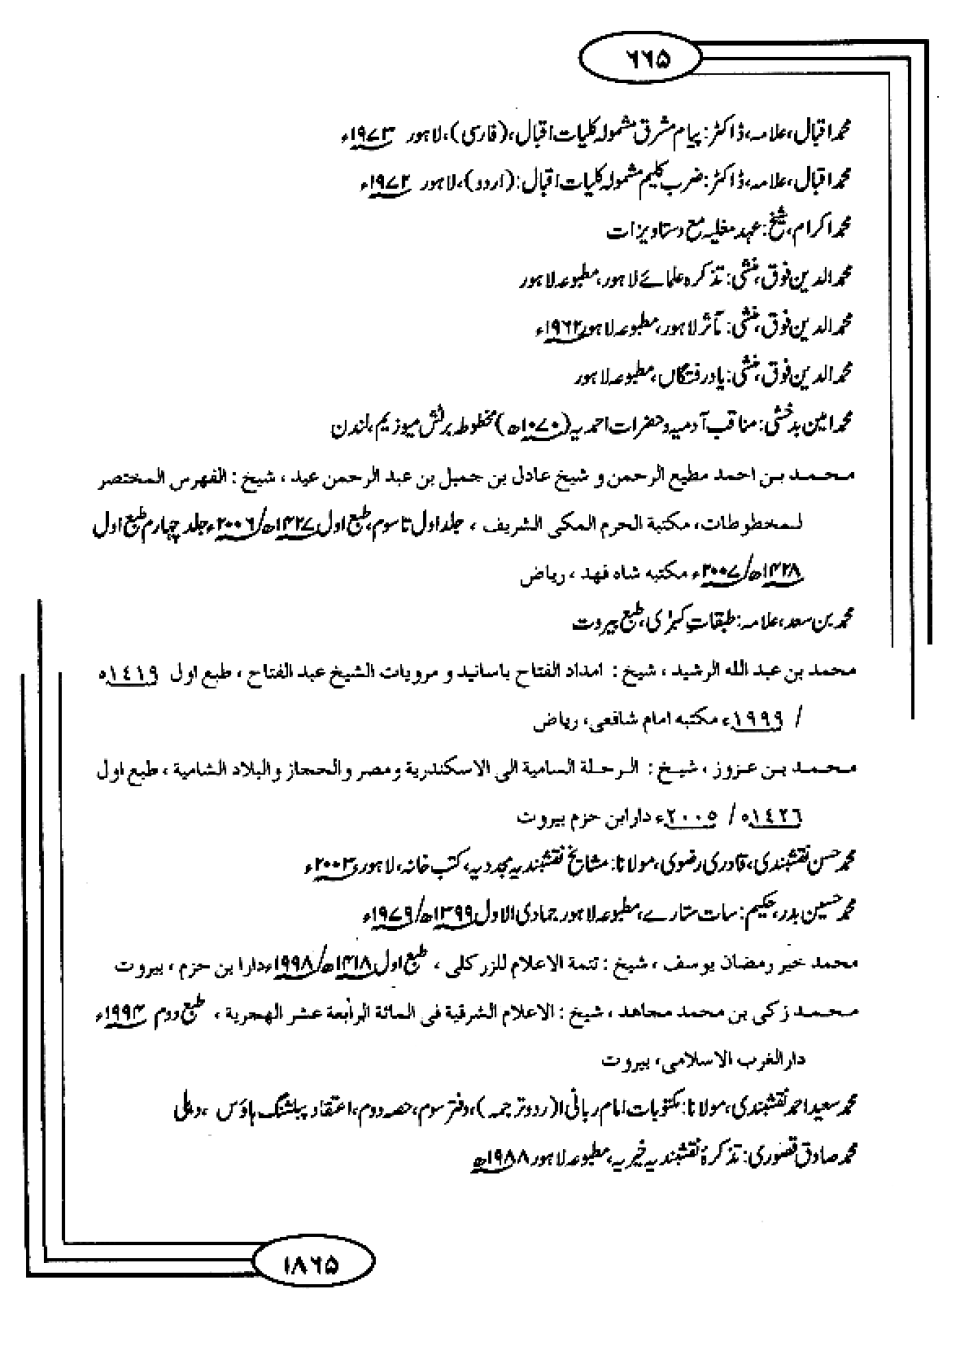 ۶۶۵
محمد اقبال، علامہ، ڈاکٹر: پیام مشرق مشمولہ کلیات اقبال، (فارسی)، لاہور ۱۹۷۳ء
محمد اقبال، علامہ، ڈاکٹر: ضرب کلیم مشمولہ کلیات اقبال: (اردو)، لاہور ۱۹۷۲ء
محمد اکرام، شیخ: عہد مغلیہ مع دستاویزات
محمد الدین فوق، منشی: تذکرہ علمائے لاہور، مطبوعہ لاہور
محمد الدین فوق، منشی: مآثر لاہور، مطبوعہ لاہور ۱۹۶۲ء
محمد الدین فوق، منشی: یاد رفتگاں، مطبوعہ لاہور
محمد امین بدخشی: مناقب آدمیہ و حضرات احمدیہ (۱۰۷۰ھ) مخطوطہ برٹش میوزیم، لندن
محمد بن احمد مطیع الرحمن و شیخ عادل بن جمیل بن عبد الرحمن عید ، شیخ : الفهرس المختصر
لمخطوطات، مکتبة الحرم المکی الشریف ، جلد اول تا سوم، طبع اول ۱۴۲۷ھ/۲۰۰۶ء جلد چہارم طبع اول
۱۴۲۸ھ/۲۰۰۷ء مکتبہ شاہ فهد ، ریاض
محمد بن سعد، علامہ: طبقات کبرٰی، طبع بیروت
محمد بن عبد الله الرشید ، شیخ : امداد الفتاح باسانید و مرویات الشیخ عبد الفتاح ، طبع اول ۱٤۱۹ه
/ ۱۹۹۹ء مکتبہ امام شافعی، ریاض
محمد بن عزوز ، شیخ : الرحلة السامیة الی الاسکندریة ومصر والحجاز والبلاد الشامیة ، طبع اول
۱٤۲٦ه / ۲۰۰۵ء دار ابن حزم بیروت
محمد حسن نقشبندی، قادری رضوی، مولانا: مشائخ نقشبندیہ مجددیہ، کتب خانہ، لاہور ۲۰۰۳ء
محمد حسین بدر، حکیم: سات ستارے، مطبوعہ لاہور جمادی الاول ۱۳۹۹ھ/۱۹۷۹ء
محمد خیر رمضان یوسف ، شیخ : تتمة الاعلام للزرکلی ، طبع اول ۱۴۱۸ھ/۱۹۹۸ء دار ابن حزم ، بیروت
محمد زکی بن محمد مجاهد ، شیخ : الاعلام الشرقیة فی المائة الرابعة عشر الهجریة ، طبع دوم ۱۹۹۴ء
دارالغرب الاسلامی، بیروت
محمد سعید احمد نقشبندی، مولانا: مکتوبات امام ربانی (اردو ترجمہ)، دفتر سوم، حصہ دوم، اعتقاد پبلشنگ ہاؤس ، دہلی
محمد صادق قصوری: تذکرۂ نقشبندیہ خیریہ، مطبوعہ لاہور ۱۹۸۸ھ
۱۸۶۵